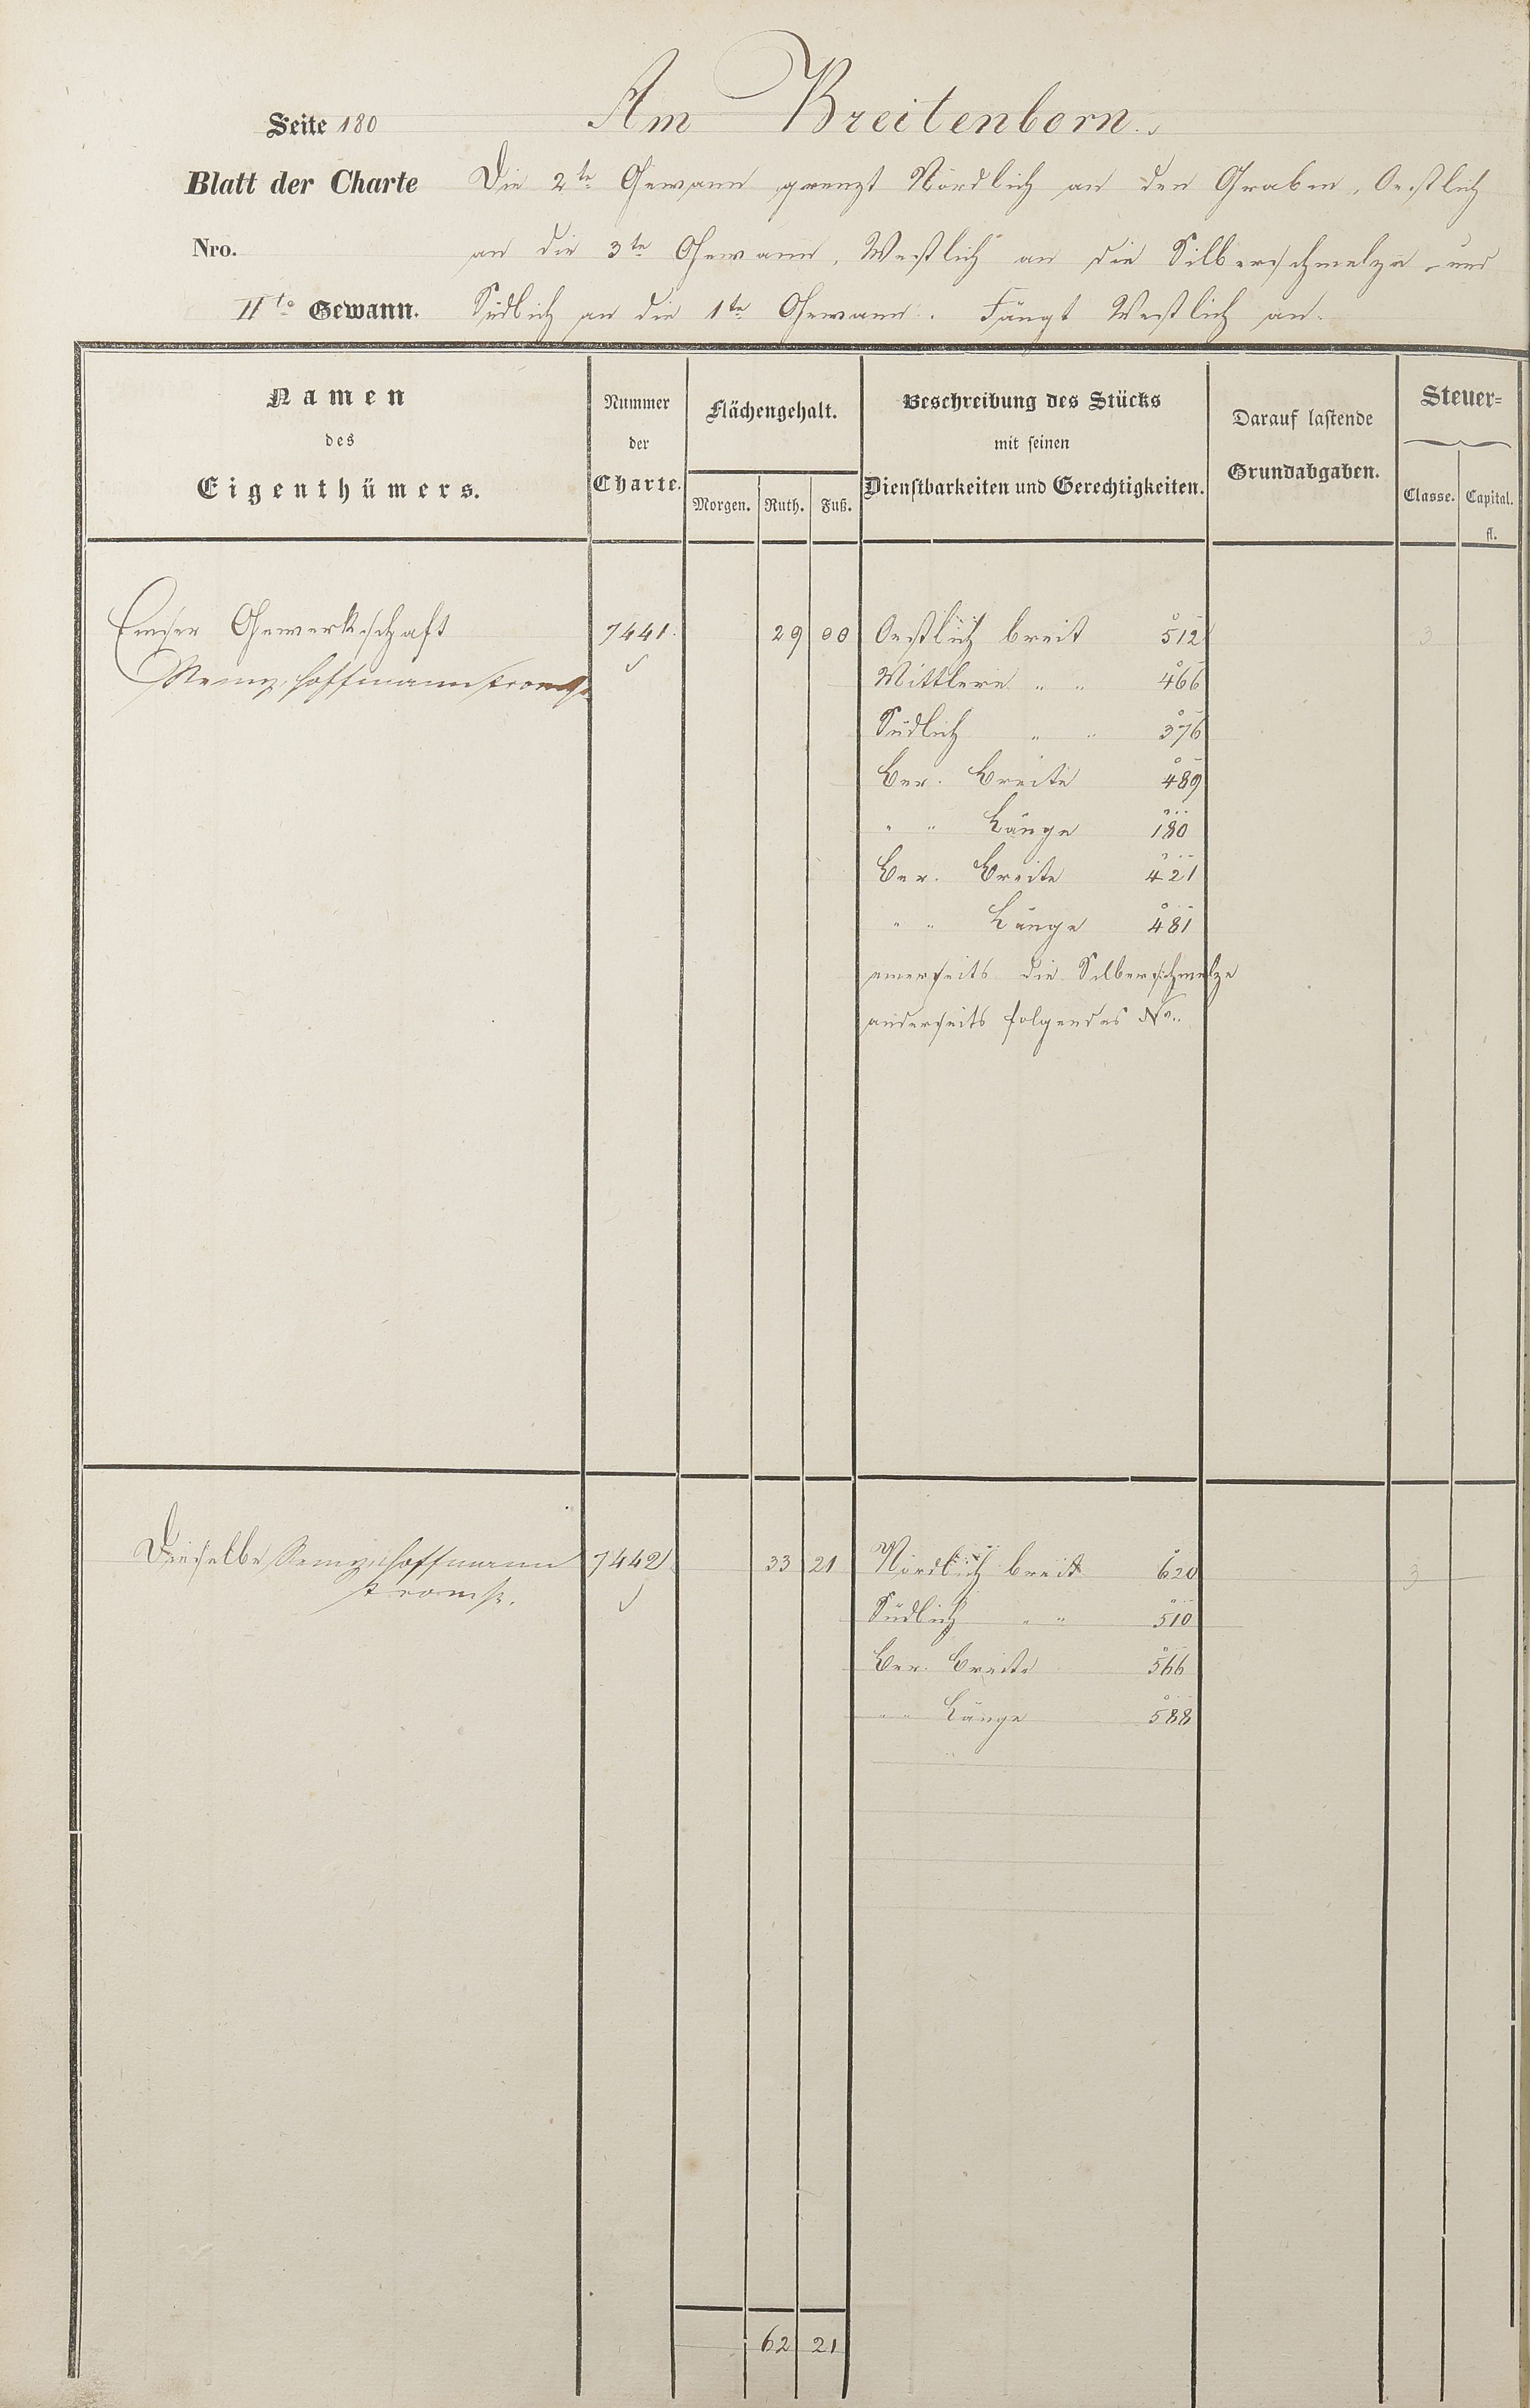 Seite 180
Am Breitenborn.
Blatt der Charte
Nro.
IIte Gewann.
Die 2te Gewann grenzt Nördlich an den Graben, Oestlich
an die 3te Gewann, Westlich an die Silberschmelze und
Südlich an die 1te Gewann. Fängt Westlich an.
Namen
des
Eigenthümers.
Nummer
der
Charte.
Flächengehalt.
Morgen. Ruth. Fuß.
Beschreibung des Stücks
mit seinen
Dienstbarkeiten und Gerechtigkeiten.
Darauf lastende
Grundabgaben.
Steuer=
Classe. Capital.
fl.
Emser Gewerkschaft 7441. 29 00 Oestlich breit 512 3
Hoffmann
Mittlere " " 466
Südlich " " 376
Ber. Breite 489
" " Länge 180
Ber. Breite 421
" " Länge 481
einerseits die Silberschmelze
anderseits folgendes No.
Dieselbe Hoffmann 7442 33 21 Nördlich breit 620 3
Südlich " " 510
Ber. Breite 566
" " Länge 588
62 21